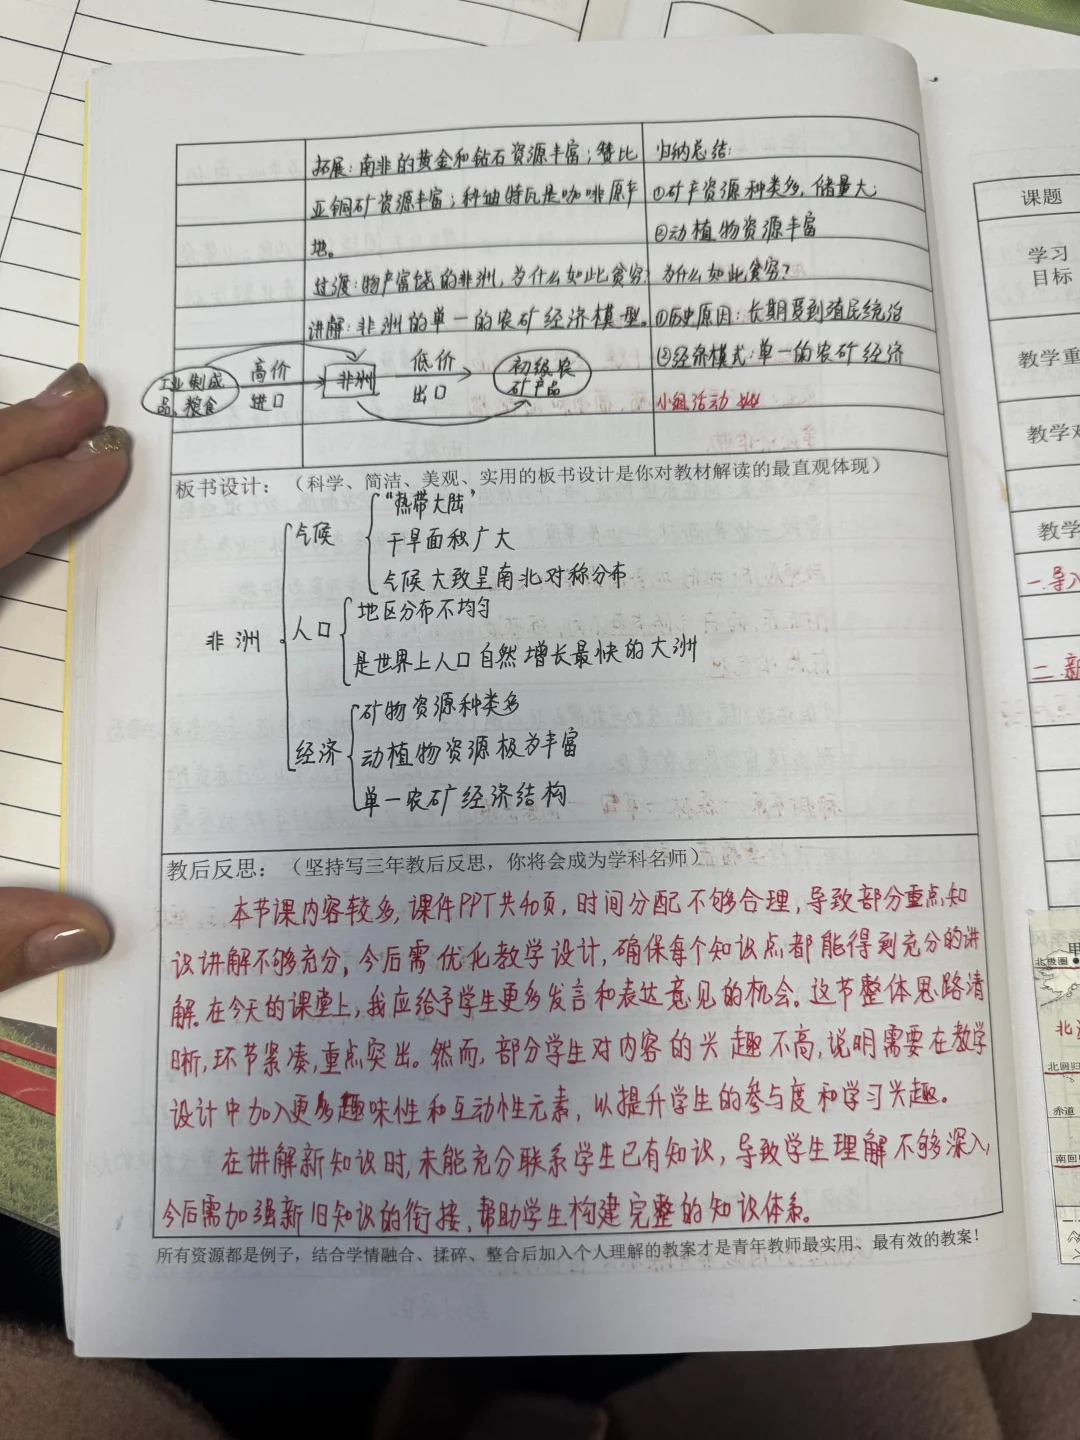 拓展：南非的黄金和钻石资源丰富；赞比
亚铜矿资源丰富；科迪特瓦是咖啡原产
地。
过渡：物产富饶的非洲，为什么如此贫穷？
讲解：非洲的单一的农矿经济模型。
工业制成品、粮食
高价
进口
非洲
低价
出口
初级农
矿产品
归纳总结：
①矿产资源种类多，储量大；
②动植物资源丰富
为什么如此贫穷？
①历史原因：长期受到殖民统治
②经济模式：单一的农矿经济
小组活动
板书设计：（科学、简洁、美观、实用的板书设计是你对教材解读的最直观体现）
非洲
气候
“热带大陆”
干旱面积广大
气候大致呈南北对称分布
人口
地区分布不均匀
是世界上人口自然增长最快的大洲
经济
矿物资源种类多
动植物资源极为丰富
单一农矿经济结构
教后反思：（坚持写三年教后反思，你将会成为学科名师）
本节课内容较多，课件PPT共40页，时间分配不够合理，导致部分重点知
识讲解不够充分，今后需优化教学设计，确保每个知识点都能得到充分的讲
解。在今天的课堂上，我应给予学生更多发言和表达意见的机会。这节整体思路清
晰，环节紧凑，重点突出。然而，部分学生对内容的兴趣不高，说明需要在教学
设计中加入更多趣味性和互动性元素，以提升学生的参与度和学习兴趣。
在讲解新知识时，未能充分联系学生已有知识，导致学生理解不够深入，
今后需加强新旧知识的衔接，帮助学生构建完整的知识体系。
所有资源都是例子，结合学情融合、揉碎、整合后加入个人理解的教案才是青年教师最实用、最有效的教案！
课题
学习
目标
教学重
教学
一.导入
二.新
北极圈
赤道